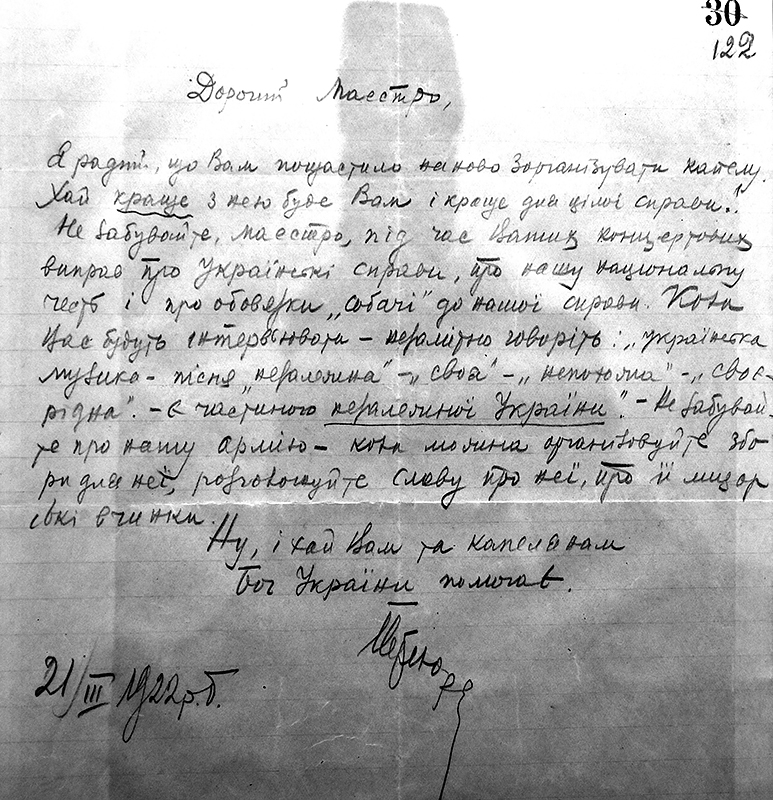 30
122
Дорогий Маестро,
Я радий, що Вам пощастило наново зорганізувати капелу.
Хай краще з нею буде Вам і краще для цілої справи!
Не забувайте, маестро, під час Ваших концертових
виправ про Українські справи, про нашу національну
честь і про обовязки „собачі" до нашої справи. Коли
Вас будуть інтервʼювати – незамітно говоріть: „українська
музика – пісня „незалежна" – „своя" – „непожята" – „своє-
рідна". – Є частиною незалежної України". – Не забувай-
те про нашу армію – коли можна організовуйте збо-
ри для неї, розголошуйте славу про неї, про її лицар
ські вчинки.
Ну, і хай Вам та капелянам
Бог України помогає.
21/III 1922 р. б.